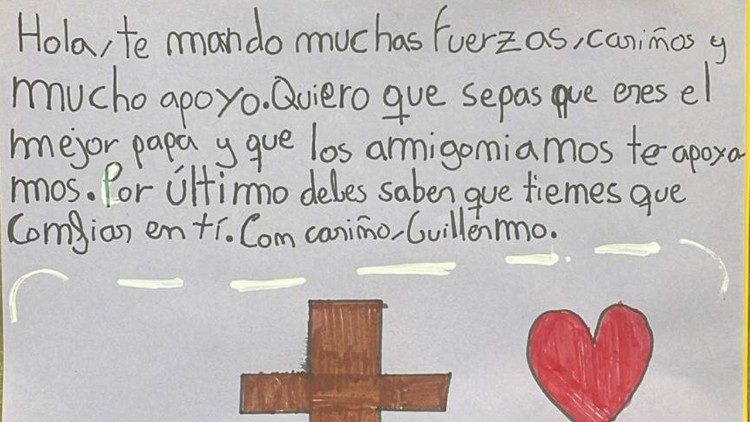 Hola, te mando muchas fuerzas, cariños y
mucho apoyo. Quiero que sepas que eres el
mejor papá y que los amigomiamos te apoya
mos. Por último debes saber que tiemes que
comfiar en tí. Com cariño, Guillermo.